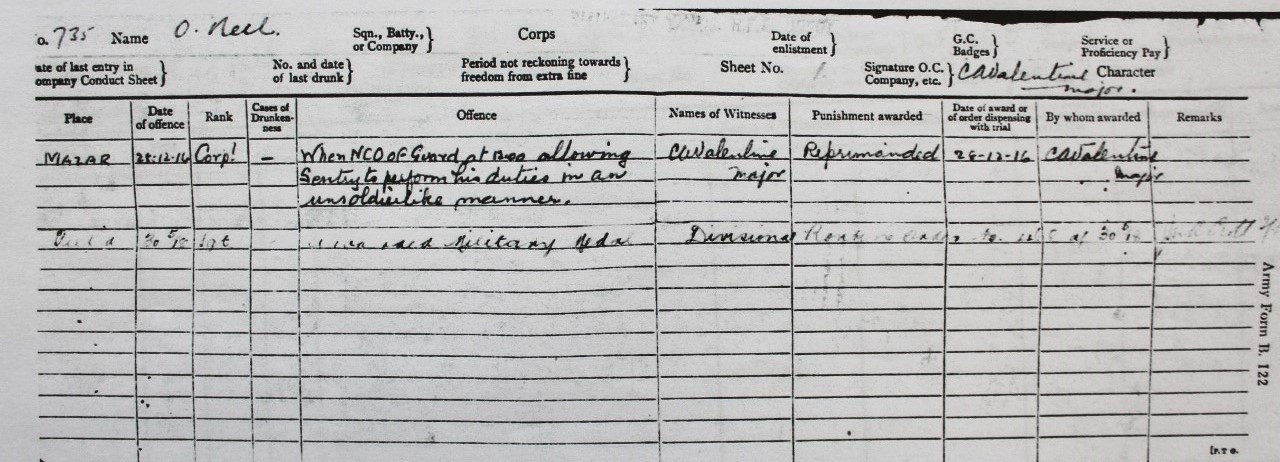 o. 735 Name O. Neil. Sqn., Batty., or Company } Corps Date of enlistment } G.C. Badges } Service or Proficiency Pay }
ate of last entry in ompany Conduct Sheet } No. and date of last drunk } Period not reckoning towards freedom from extra fine } Sheet No. 1. Signature O.C. Company, etc. } CAValentine Major. Character
Place Date of offence Rank Cases of Drunken-ness Offence Names of Witnesses Punishment awarded Date of award or of order dispensing with trial By whom awarded Remarks
MAZAR 28-12-16 Corpl — When NCO of Guard at 1200 allowing CAValentine Reprimanded 28-12-16 CAValentine
Sentry to perform his duties in an Major Major
unsoldierlike manner.
Field 30 5/18 Sgt Military Medal Divisional Routine Order No. of 30 5/18
Army Form B. 122
[P.T.O.